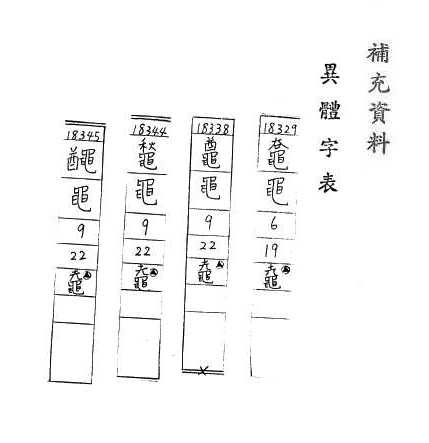 補充資料
異體字表
18329
黽
6
19
鼀
18338
黽
9
22
鼀
18344
黽
9
22
鼀
18345
黽
9
22
鼀